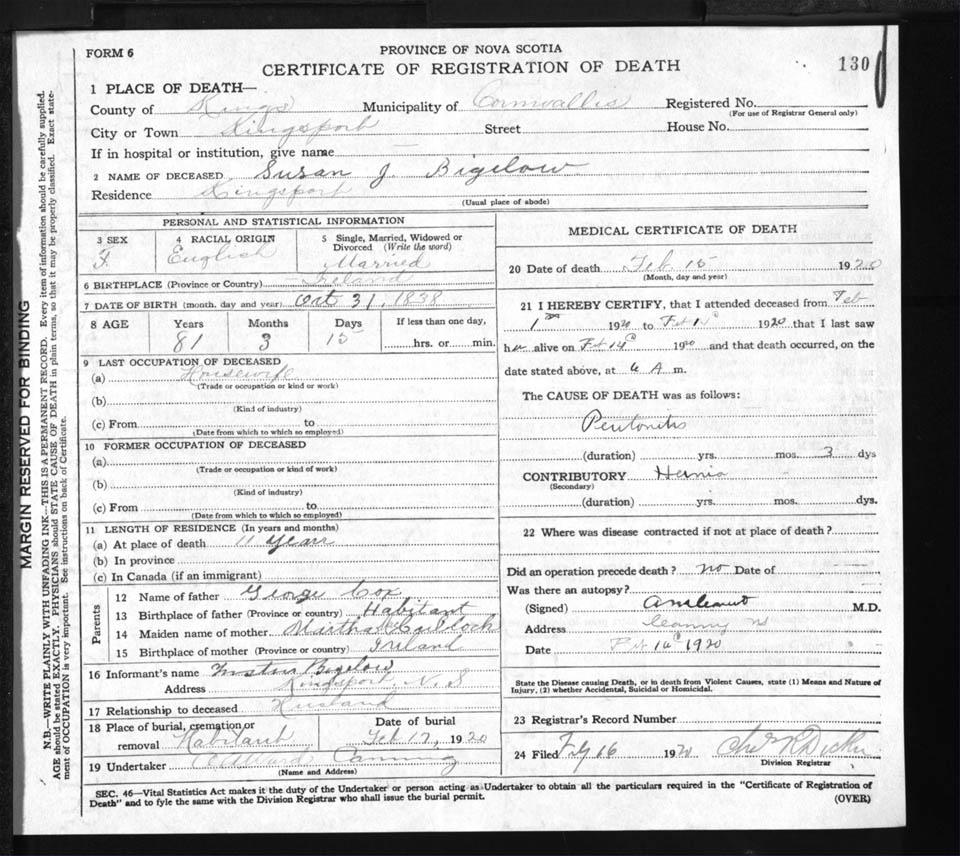 FORM 6
PROVINCE OF NOVA SCOTIA
CERTIFICATE OF REGISTRATION OF DEATH
130
1 PLACE OF DEATH—
County of Kings Municipality of Cornwallis Registered No.
(For use of Registrar General only)
City or Town Kingsport Street House No.
If in hospital or institution, give name
2 NAME OF DECEASED Susan J. Bigelow
Residence Kingsport
(Usual place of abode)
PERSONAL AND STATISTICAL INFORMATION
3 SEX 4 RACIAL ORIGIN 5 Single, Married, Widowed or
Divorced (Write the word)
F. English Married
6 BIRTHPLACE (Province or Country) Ireland
7 DATE OF BIRTH (month, day and year) Oct 31, 1838
8 AGE Years Months Days If less than one day,
81 3 15 hrs. or min.
9 LAST OCCUPATION OF DECEASED
(a) Housewife
(Trade or occupation or kind or work)
(b)
(Kind of industry)
(c) From to
(Date from which to which so employed)
10 FORMER OCCUPATION OF DECEASED
(a)
(Trade or occupation or kind of work)
(b)
(Kind of industry)
(c) From to
(Date from which to which so employed)
11 LENGTH OF RESIDENCE (In years and months)
(a) At place of death 11 years
(b) In province
(c) In Canada (if an immigrant)
Parents
12 Name of father George Cox
13 Birthplace of father (Province or country) Habitant
14 Maiden name of mother Martha
15 Birthplace of mother (Province or country) Ireland
16 Informant's name Bigelow
Address Kingsport, N.S
17 Relationship to deceased Husband
18 Place of burial, cremation or removal Habitant Date of burial Feb 17, 1920
19 Undertaker Canning
(Name and Address)
MEDICAL CERTIFICATE OF DEATH
20 Date of death Feb 15 1920
(Month, day and year)
21 I HEREBY CERTIFY, that I attended deceased from Feb
1st 1920 to Feb 1920 that I last saw
her alive on Feb 14th 1920 and that death occurred, on the
date stated above, at 6 A m.
The CAUSE OF DEATH was as follows:
Peritonitis
(duration) yrs. mos. 3 dys
CONTRIBUTORY Hernia
(Secondary)
(duration) yrs. mos. dys.
22 Where was disease contracted if not at place of death?
Did an operation precede death? no Date of
Was there an autopsy?
(Signed) M.D.
Address Canning NS
Date Feb 1920
State the Disease causing Death, or in death from Violent Causes, state (1) Means and Nature of
Injury, (2) whether Accidental, Suicidal or Homicidal.
23 Registrar's Record Number
24 Filed 16 1920 Chas R Dickie
Division Registrar
SEC. 46—Vital Statistics Act makes it the duty of the Undertaker or person acting as Undertaker to obtain all the particulars required in the "Certificate of Registration of
Death" and to fyle the same with the Division Registrar who shall issue the burial permit.
(OVER)
MARGIN RESERVED FOR BINDING
N.B.—WRITE PLAINLY WITH UNFADING INK—THIS IS A PERMANENT RECORD. Every item of information should be carefully supplied.
AGE should be stated EXACTLY. PHYSICIANS should STATE CAUSE OF DEATH in plain terms, so that it may be properly classified. Exact state-
ment of OCCUPATION is very important. See instructions on back of Certificate.